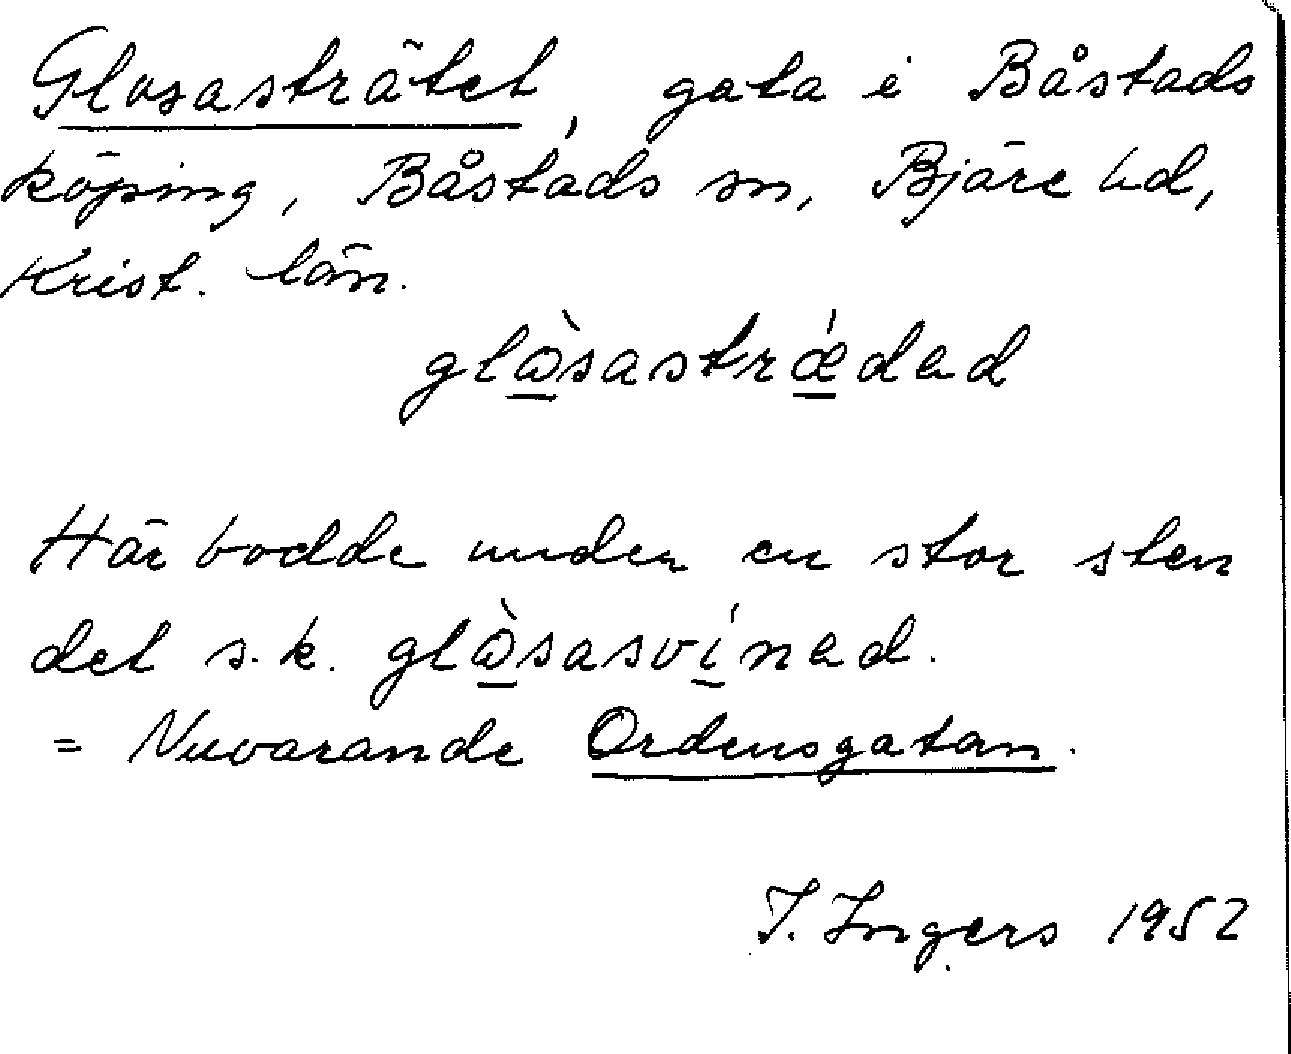 Glosasträtet, gata i Båstads
köping, Båstads sn, Bjäre hd,
Krist. län.
glò̠sastrǽ̠dad
Här bodde under en stor sten
det s.k. glò̠sasví̠nad.
= Nuvarande Ordensgatan.
I. Ingers 1952